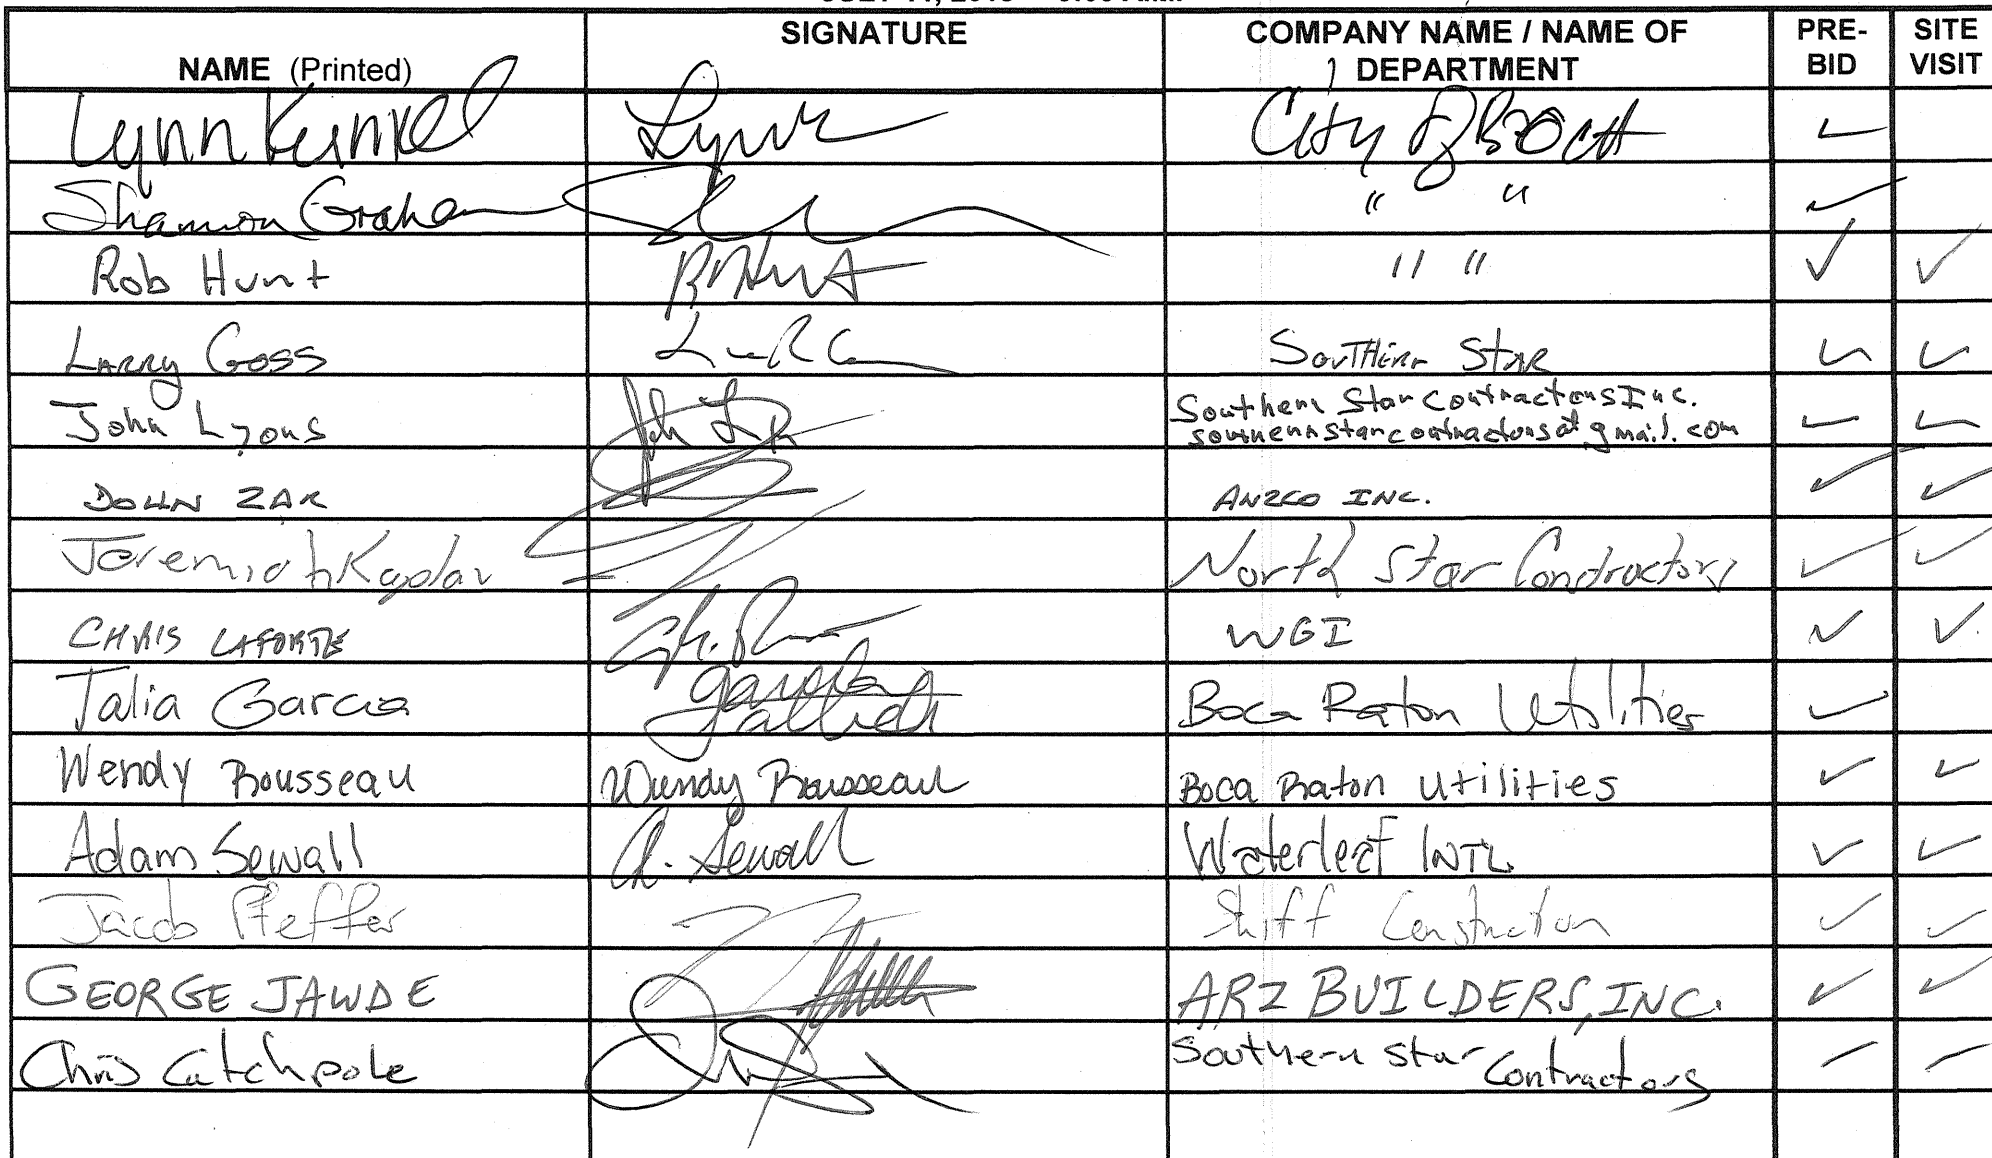 SIGNATURE COMPANY NAME / NAME OF PRE- SITE
NAME (Printed) DEPARTMENT BID VISIT
Lynn Kunkel Lynn City of BOCA ✓
Shannon Graham " " ✓
Rob Hunt " " ✓ ✓
Larry Goss Southern Star ✓ ✓
John Lyons Southern Star Contractors Inc. ✓ ✓
southernstarcontractorsatgmail.com
ZAR ANZCO INC. ✓ ✓
Jeremiah Kaplan North Star Contractors ✓ ✓
CHRIS LAFORTE WGI ✓ ✓
Talia Garcia Boca Raton Utilities ✓
Wendy Rousseau Wendy Rousseau Boca Raton Utilities ✓ ✓
Adam Sewall A. Sewall Waterleaf INTL ✓ ✓
Jacob Pfeffer Construction ✓ ✓
GEORGE JAWDE ARZ BUILDERS, INC. ✓ ✓
Chris Catchpole Southern Star Contractors ✓ ✓